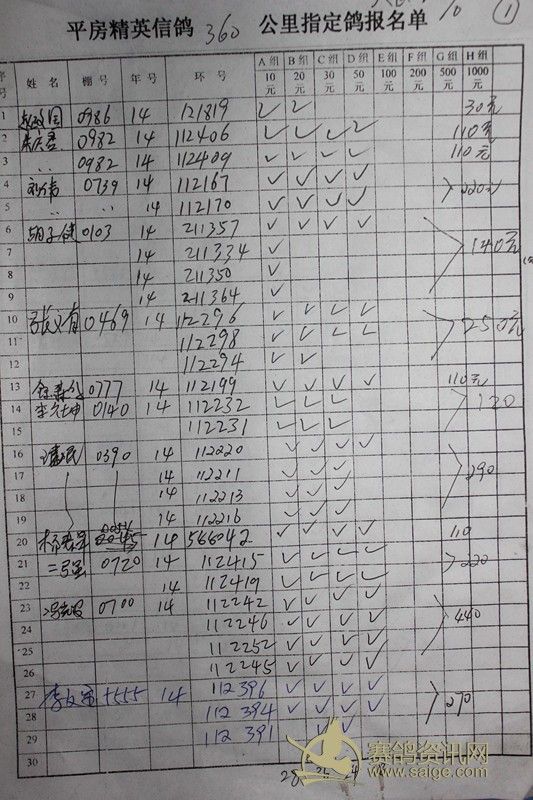 ①
平房精英信鸽 360 公里指定鸽报名单
序号 姓名 棚号 年号 环号 A组10元 B组20元 C组30元 D组50元 E组100元 F组200元 G组500元 H组1000元
1 0986 14 121819 ✓ ✓ 30元
2 0982 14 112406 ✓ ✓ ✓ ✓ 110元
3 0982 14 112409 ✓ ✓ ✓ ✓ 110元
4 0739 14 112167 ✓ ✓ ✓ ✓ 220元
5 14 112170 ✓ ✓ ✓ ✓
6 0103 14 211357 ✓ ✓ ✓ ✓
7 14 211334 ✓ 140元
8 14 211350 ✓
9 14 211364 ✓
10 张文有 0469 14 112296 ✓ ✓ ✓ ✓ 250元
11 112298 ✓ ✓ ✓ ✓
12 112294 ✓ ✓
13 0777 14 112199 ✓ ✓ ✓ ✓ 110元
14 0140 14 112232 ✓ ✓ ✓ 120
15 112231 ✓ ✓ ✓
16 0390 14 112220 ✓ ✓ ✓
17 14 112211 ✓ ✓ ✓ 290
18 14 112213 ✓ ✓
19 14 112216 ✓ ✓ ✓
20 14 566042 ✓ ✓ ✓ ✓ 110
21 0720 14 112415 ✓ ✓ ✓ ✓ 220
22 14 112419 ✓ ✓ ✓ ✓
23 0700 14 112242 ✓ ✓ ✓ ✓ 440
24 112246 ✓ ✓ ✓ ✓
25 112252 ✓ ✓ ✓ ✓
26 112245 ✓ ✓ ✓ ✓
27 14 112396 ✓ ✓ ✓ ✓ 270
28 112394 ✓ ✓ ✓ ✓
29 112391 ✓ ✓
30
28
赛鸽资讯网
www.saige.com